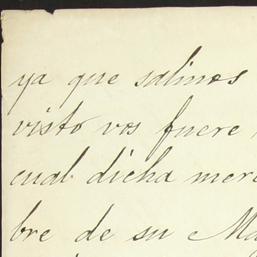 ya que salimos
visto vos fuere
cual dicha mer
bre de su Ma